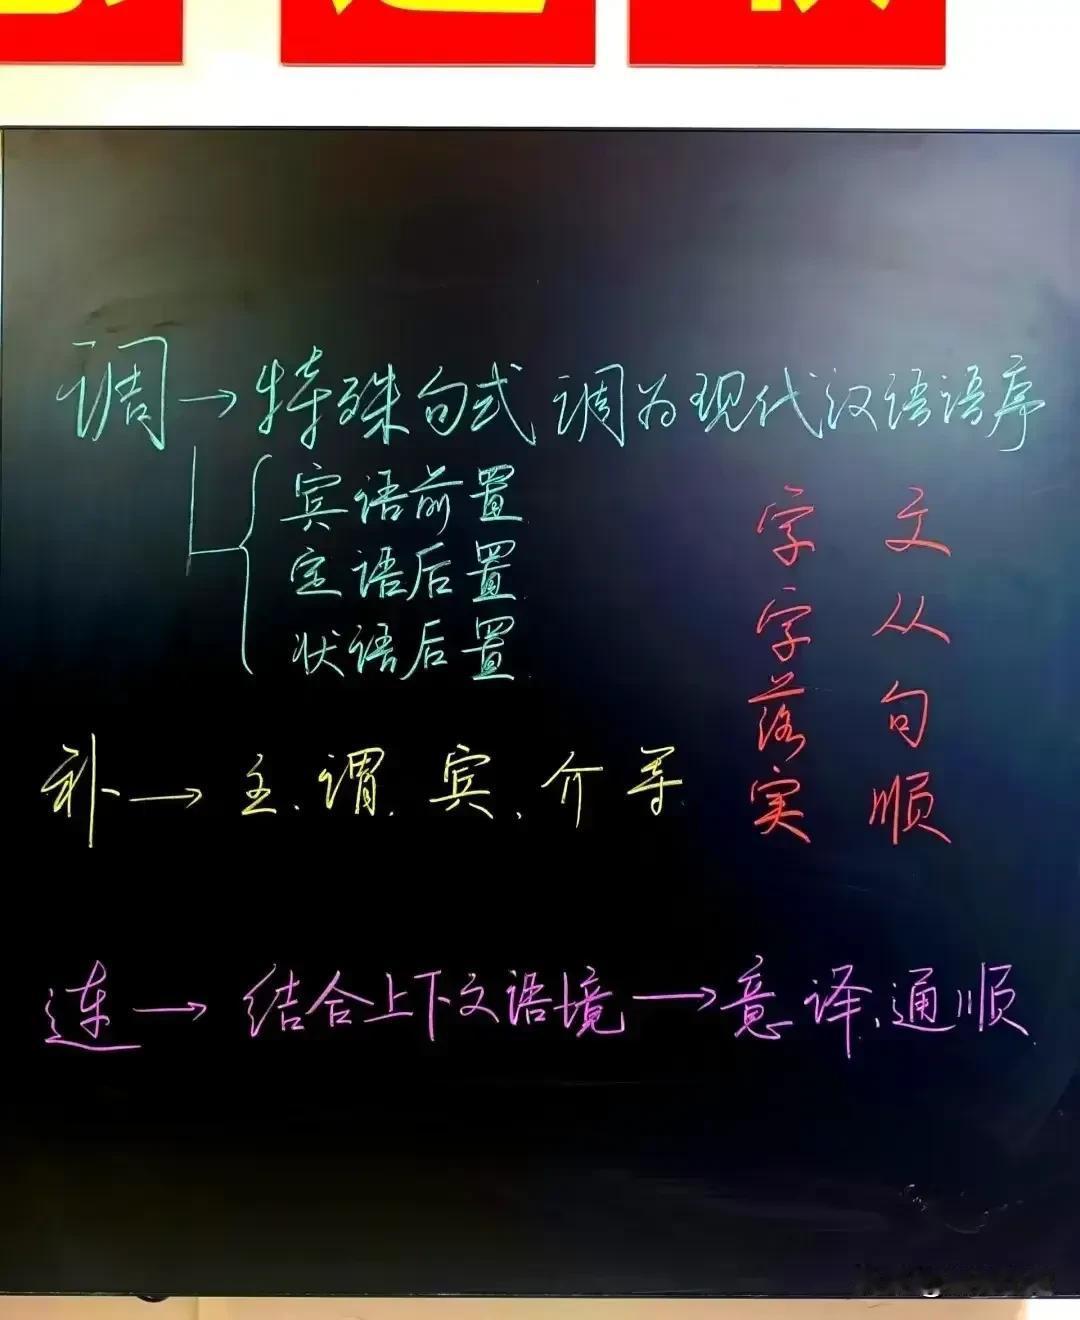 调→特殊句式 调为现代汉语语序
宾语前置
定语后置
状语后置
文从句顺
字字落实
补→主、谓、宾、介等
连→结合上下文语境→意译、通顺